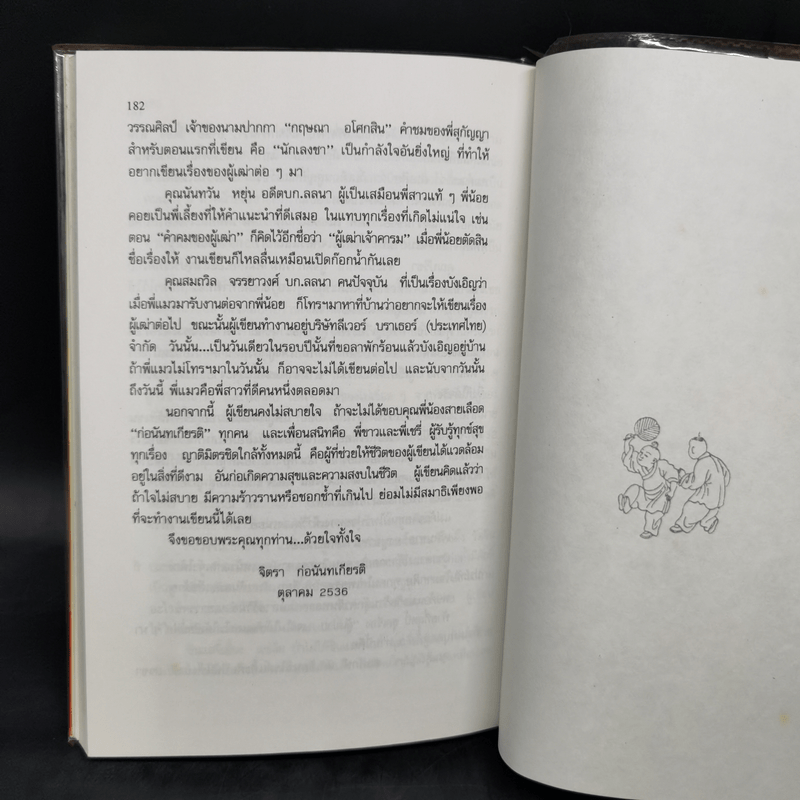 182
วรรณศิลป์ เจ้าของนามปากกา “กฤษณา อโศกสิน” คำชมของพี่สุกัญญา
สำหรับตอนแรกที่เขียน คือ “นักเลงชา” เป็นกำลังใจอันยิ่งใหญ่ ที่ทำให้
อยากเขียนเรื่องของผู้เฒ่าต่อ ๆ มา
คุณนันทวัน หยุ่น อดีตบก.ลลนา ผู้เป็นเสมือนพี่สาวแท้ ๆ พี่น้อย
คอยเป็นพี่เลี้ยงที่ให้คำแนะนำที่ดีเสมอ ในแทบทุกเรื่องที่เกิดไม่แน่ใจ เช่น
ตอน “คำคมของผู้เฒ่า” ก็คิดไว้อีกชื่อว่า “ผู้เฒ่าเจ้าคารม” เมื่อพี่น้อยตัดสิน
ชื่อเรื่องให้ งานเขียนก็ไหลลื่นเหมือนเปิดก๊อกน้ำกันเลย
คุณสมถวิล จรรยาวงศ์ บก.ลลนา คนปัจจุบัน ที่เป็นเรื่องบังเอิญว่า
เมื่อพี่แมวมารับงานต่อจากพี่น้อย ก็โทรฯมาหาที่บ้านว่าอยากจะให้เขียนเรื่อง
ผู้เฒ่าต่อไป ขณะนั้นผู้เขียนทำงานอยู่บริษัทลีเวอร์ บราเธอร์ (ประเทศไทย)
จำกัด วันนั้น...เป็นวันเดียวในรอบปีนั้นที่ขอลาพักร้อนแล้วบังเอิญอยู่บ้าน
ถ้าพี่แมวไม่โทรฯมาในวันนั้น ก็อาจจะไม่ได้เขียนต่อไป และนับจากวันนั้น
ถึงวันนี้ พี่แมวคือพี่สาวที่ดีคนหนึ่งตลอดมา
นอกจากนี้ ผู้เขียนคงไม่สบายใจ ถ้าจะไม่ได้ขอบคุณพี่น้องสายเลือด
“ก่อนันทเกียรติ” ทุกคน และเพื่อนสนิทคือ พี่ขาวและพี่เชรี่ ผู้รับรู้ทุกข์สุข
ทุกเรื่อง ญาติมิตรชิดใกล้ทั้งหมดนี้ คือผู้ที่ช่วยให้ชีวิตของผู้เขียนได้แวดล้อม
อยู่ในสิ่งที่ดีงาม อันก่อเกิดความสุขและความสงบในชีวิต ผู้เขียนคิดแล้วว่า
ถ้าใจไม่สบาย มีความร้าวรานหรือชอกช้ำที่เกินไป ย่อมไม่มีสมาธิเพียงพอ
ที่จะทำงานเขียนนี้ได้เลย
จึงขอขอบพระคุณทุกท่าน...ด้วยใจทั้งใจ
จิตรา ก่อนันทเกียรติ
ตุลาคม 2536